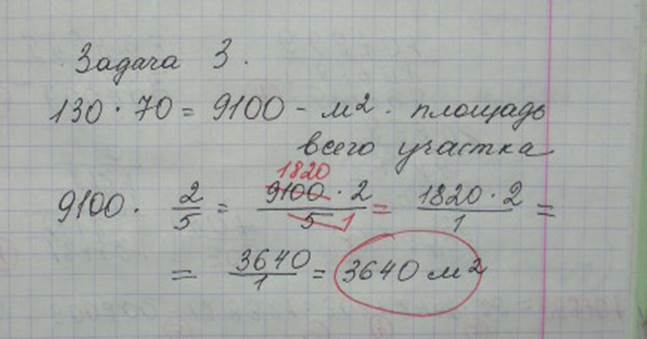 Задача 3.
130 · 70 = 9100 - м² - площадь
всего участка
1820
9100 · 2/5 = 9100 · 2/5 1 = 1820 · 2/1 =
= 3640/1 = 3640 м²